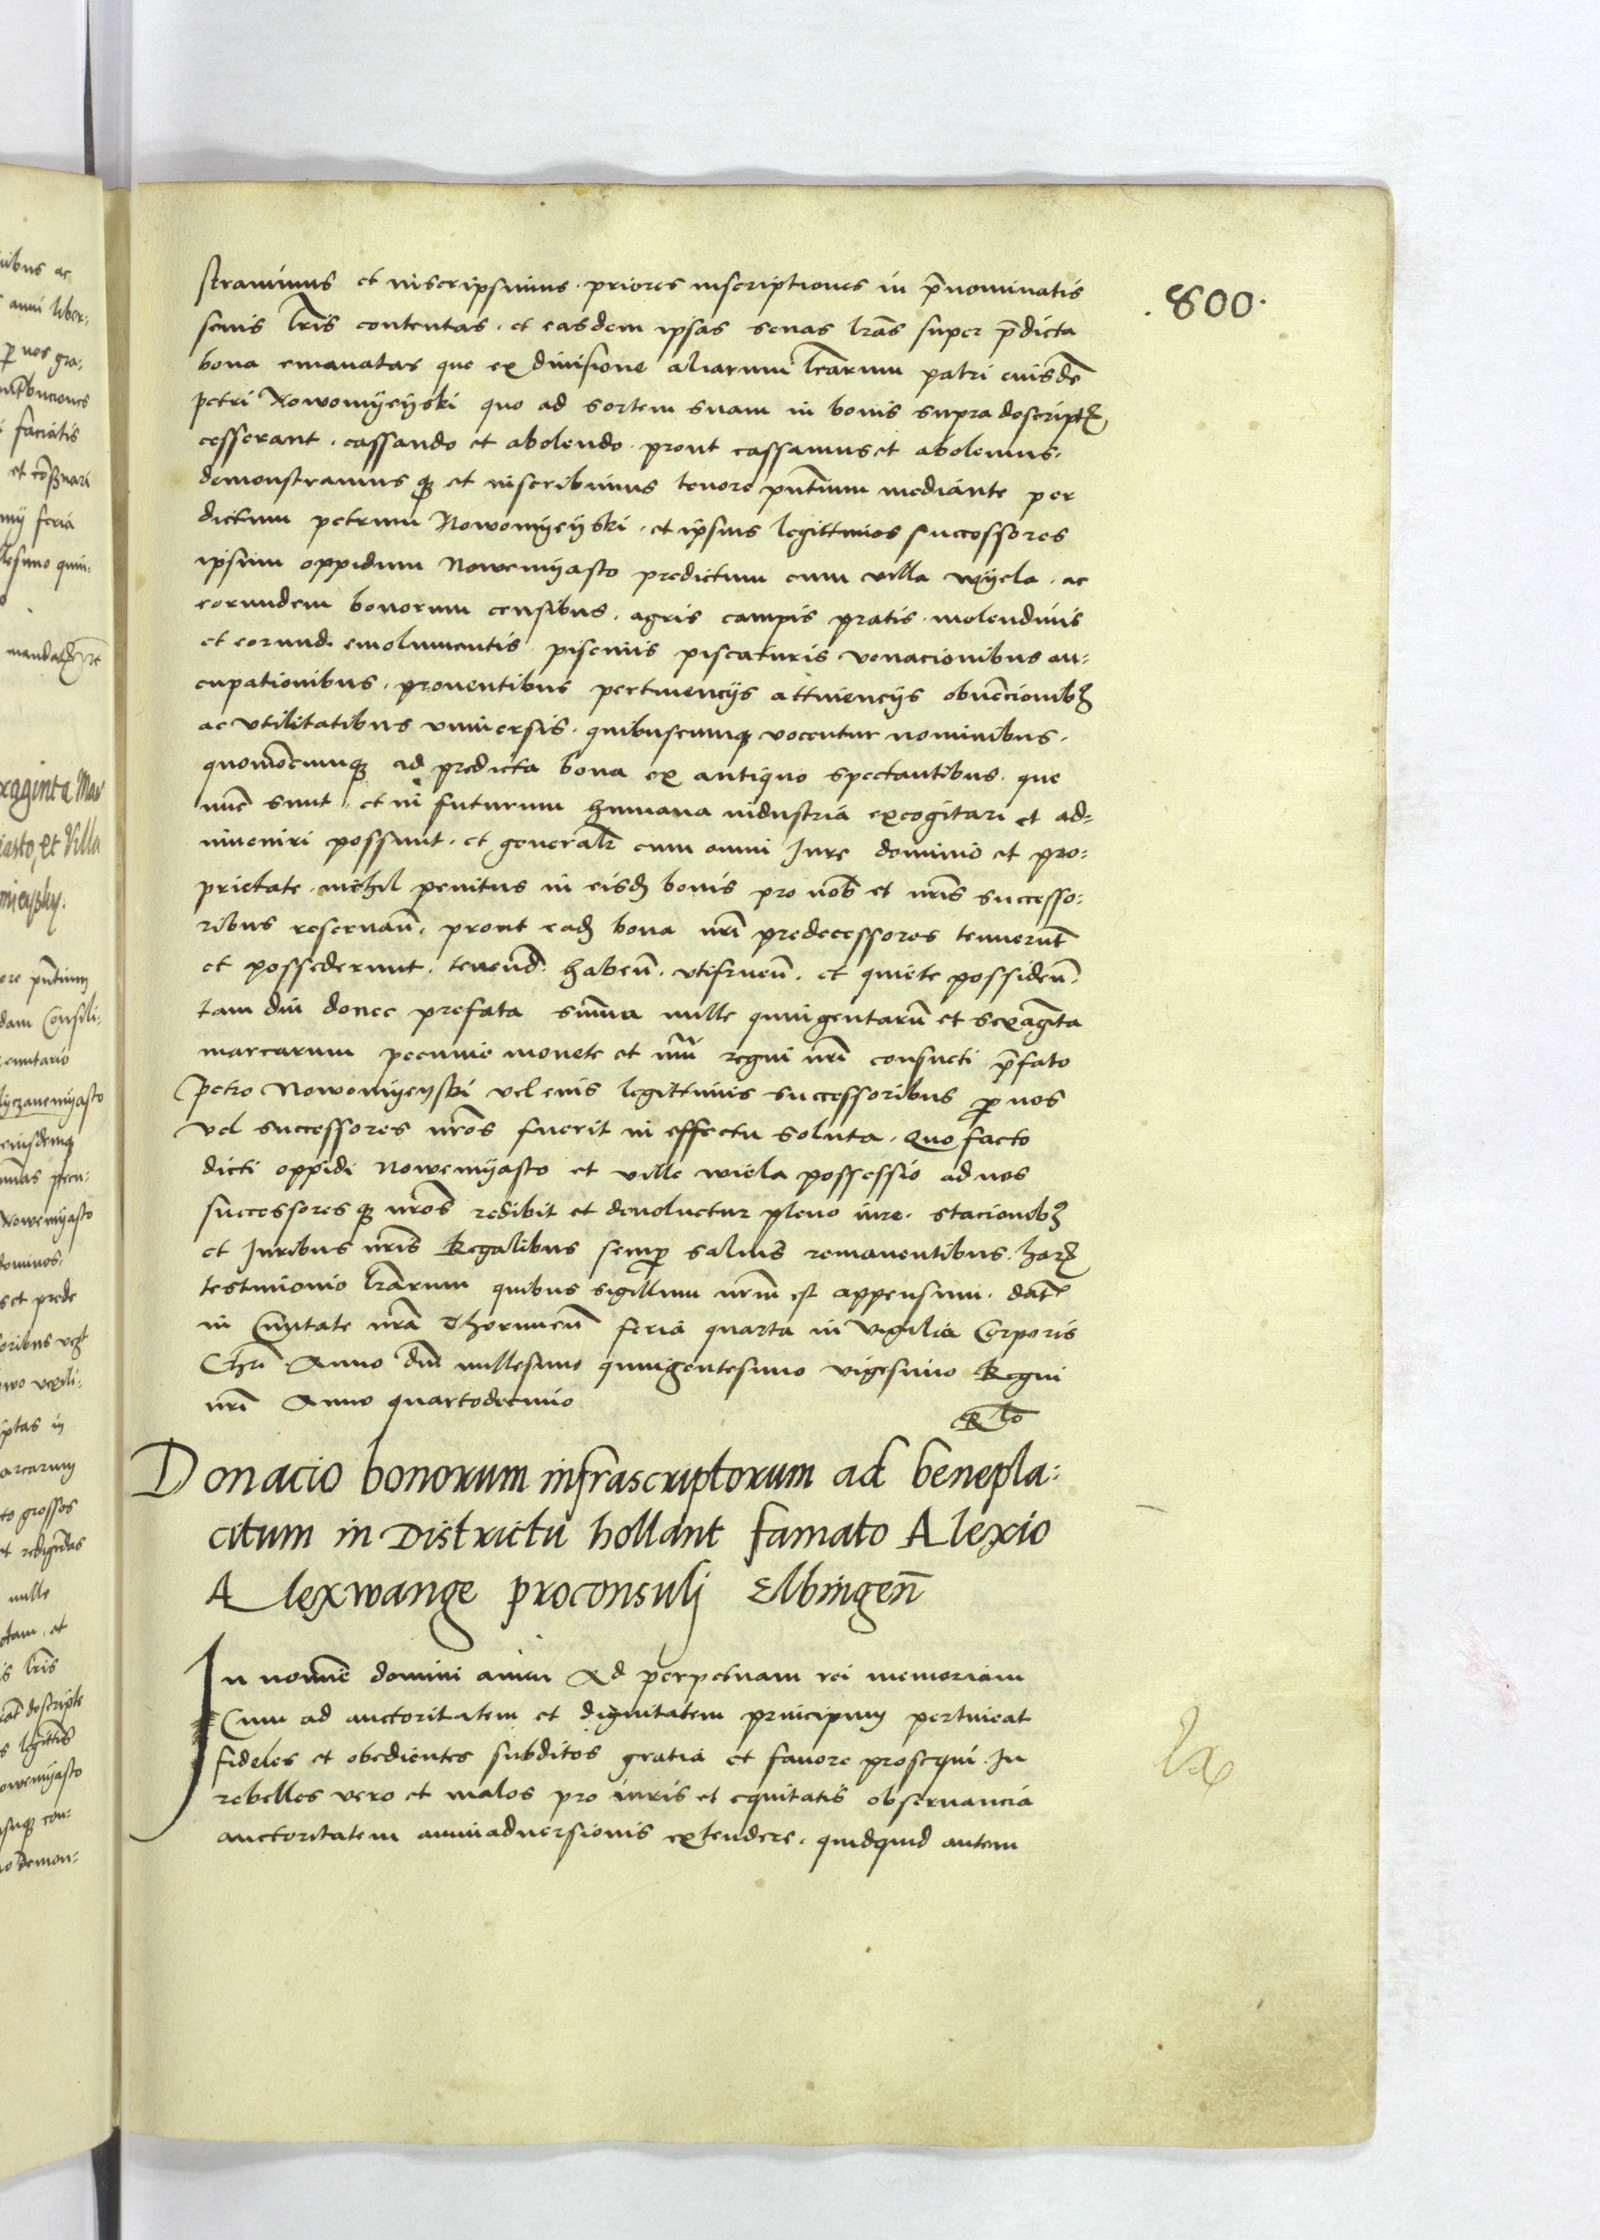 800.
strauimus et inscripsimus. priores inscriptiones in p̄nominatis
senis lr̄is contentas. et easdem ipsas senas lr̄as super p̄dicta
bona emanatas que ex diuisione aliarum lr̄arum patri eiusdē
petri Nowomyeyski quo ad sortem suam in bonis supra descriptꝭ
cesserant. cassando et abolendo. prout cassamus et abolemus.
demonstramusqꝫ et inscribimus tenore pn̄tium mediante per
dictum petrum Nowomyeyski. et ipsius legittimos successores
ipsum oppidum Nowemyasto predictum cum villa wyela. ac
eorundem bonorum censibus. agris campis pratis. molendinis
et eorund. emolumentis piscinis piscaturis venacionibus au-
cupationibus. prouentibus pertinencijs attinencijs obuēcionibꝫ
ac vtilitatibus vniuersis. quibuscumqꝫ vocentur nominibus.
quomō͞cumqꝫ ad predicta bona ex antiquo spectantibus. que
nūc sunt. et in futurum humana industria excogitari et ad-
inueniri possunt. et generalr̄ cum omni Jure dominio et pro-
prietate. nichil penitus in eisd̄ bonis pro nob̄ et nr̄is successo-
ribus reseruan̄. prout ead̄ bona nr̄i predecessores tenuerūt
et possederunt. tenend̄. haben̄. vtifruen̄. et quiete possiden̄.
tam diu donec prefata sūma mille quingentarū et sexagīta
marcarum pecunie monete et nūi regni nr̄i consueti p̄fato
Petro Nowomyeyski vel eius legittimis successoribus ꝑ nos
vel successores nr̄os fuerit in effectu soluta. Quo facto
dicti oppidi Nowemyasto et ville wiela possessio ad nos
successoresqꝫ nr̄os redibit et deuoluetur pleno iure. stacionibꝫ
et Juribus nr̄is Regalibus semꝑ saluis remanentibus. harꝭ
testimonio lr̄arum quibus sigillum nr̄m est appensum. dat̄
in Ciuitate nr̄a Thorunen̄ feria quarta in vigilia Corporis
Chr̄i Anno dn̄i millesimo quingentesimo vigesimo Regni
nr̄i Anno quartodecimo
Rl̄o
Donacio bonorum infrascriptorum ad benepla-
citum in Districtu hollant famato Alexio
Alexwange proconsuli Elbingen̄
In nomīe domini amen Ad perpetuam rei memoriam
Cum ad auctoritatem et dignitatem principum pertineat
fideles et obedientes subditos gratia et fauore prosequi. In
rebelles vero et malos pro iuris et equitatis obseruancia
auctoritatem animaduersionis extendere. quidquid autem